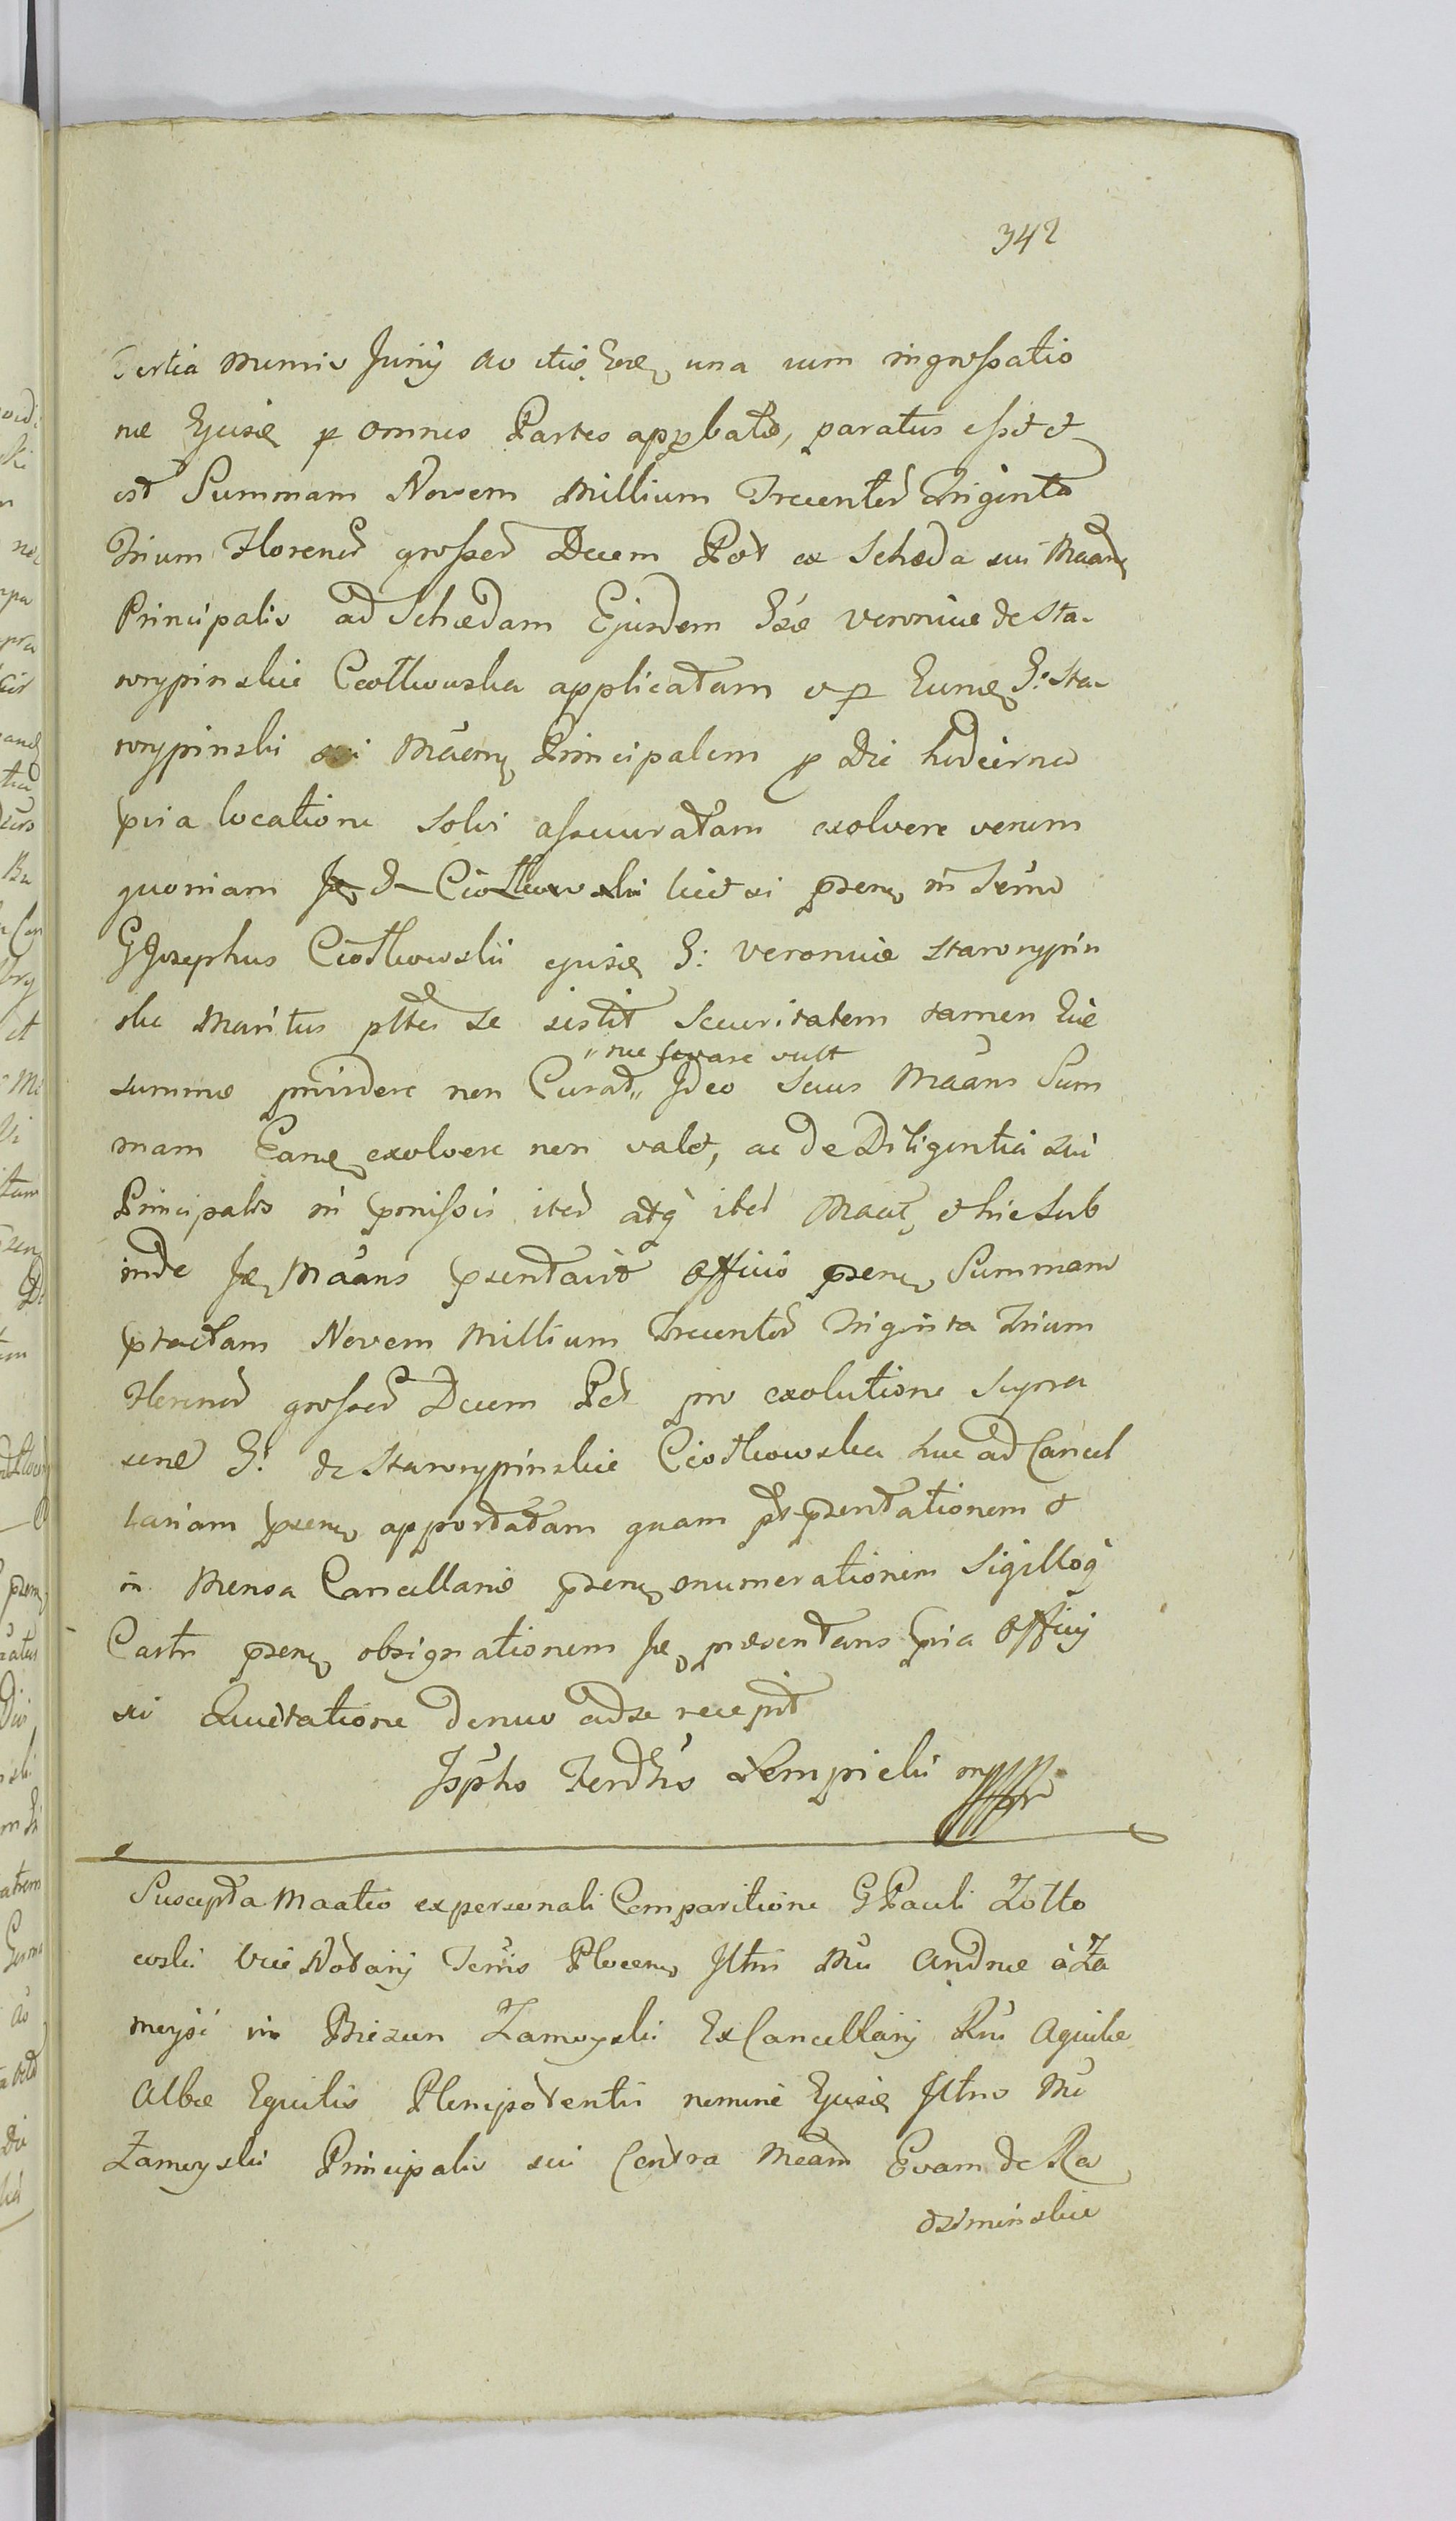 342
Tertia mensis Junij Ao itio, una cum ingrossatio
ne Ejusd p omnes Partes approbato, paratus esset et
est Summam Novem Millium Trecentor Triginta
Trium Florenor grosseor Decem Pol ex Scheda sui Maan
Principalis ad Schedam Ejusdem Gsae Veronicae de Sta-
rorypinskie Ciotkowska applicatam et p Eund G: Sta-
rorypinski sui Maem Principalem p Die hodierna
pvia locatione solvi assecuratam exolvere verum
quoniam licet si psens in Termo
G Josephus Ciotkowski ejusd G: Veronicae Starorypin
ska Maritus pltr se sistit Securitatem tamen Eiae
"nec levare vult
summae providere non Curat" Ideo Suus Maans Sum
mam Eand exolvere non valet, ac de Diligentia sui
Principalis in pmissis iter atq iter Maat, et hic sub
inde Id Maans psentavit Officio psen Summam
ptactam Novem Millium Trecentor Triginta Trium
Florenor grosseor Decem Pol pro exolutione Supra
scrae G: de Starorypinskie Ciotkowska huc ad Cancel
lariam psen apportatam quam pt psentationem et
in Mensa Cancellariae psen enumerationem Sigilloq
Castr psen obsignationem Id praesentans pvia Officij
sui Quietatione denuo ad se recepit
Jsphs Ferdns Lempicki mpp
Suscepta Maatio ex personali Comparitione G Pauli Zotto
wski Vice Notarij Terris Plocen Illtri Mci Andreae à Za
moysć in Biezun Zamoyski Ex Cancellarij Rni Aquilae
Albae Equitis Plenipotentis nomine Ejusd Illtris Mci
Zamoyski Principalis sui Contra Mcam Evam de Ra
dziminskie